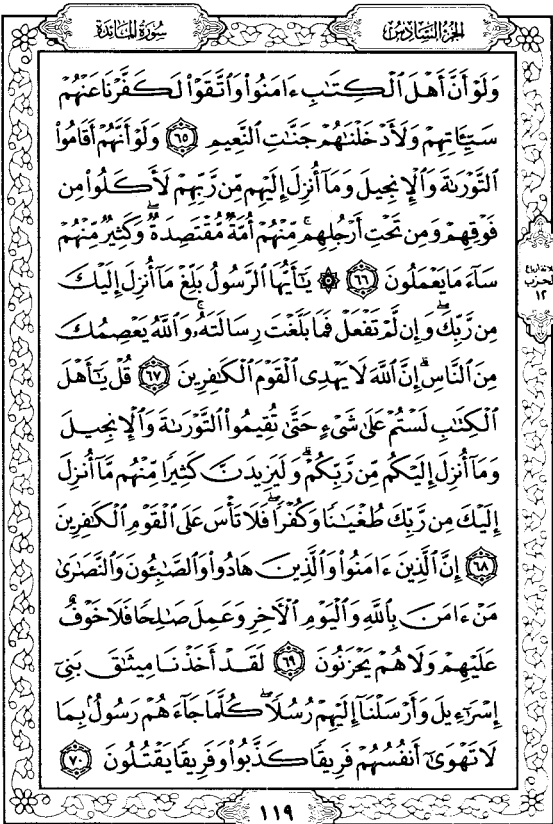 سُورَةُ المَائدة
الجُزءُ السَّادِسُ
وَلَوْ أَنَّ أَهْلَ ٱلْكِتَٰبِ ءَامَنُوا۟ وَٱتَّقَوْا۟ لَكَفَّرْنَا عَنْهُمْ
سَيِّـَٔاتِهِمْ وَلَأَدْخَلْنَٰهُمْ جَنَّٰتِ ٱلنَّعِيمِ ٦٥ وَلَوْ أَنَّهُمْ أَقَامُوا۟
ٱلتَّوْرَىٰةَ وَٱلْإِنجِيلَ وَمَآ أُنزِلَ إِلَيْهِم مِّن رَّبِّهِمْ لَأَكَلُوا۟ مِن
فَوْقِهِمْ وَمِن تَحْتِ أَرْجُلِهِم ۚ مِّنْهُمْ أُمَّةٌ مُّقْتَصِدَةٌ ۖ وَكَثِيرٌ مِّنْهُمْ
سَآءَ مَا يَعْمَلُونَ ٦٦ ۞ يَٰٓأَيُّهَا ٱلرَّسُولُ بَلِّغْ مَآ أُنزِلَ إِلَيْكَ
مِن رَّبِّكَ ۖ وَإِن لَّمْ تَفْعَلْ فَمَا بَلَّغْتَ رِسَالَتَهُۥ ۚ وَٱللَّهُ يَعْصِمُكَ
مِنَ ٱلنَّاسِ ۗ إِنَّ ٱللَّهَ لَا يَهْدِى ٱلْقَوْمَ ٱلْكَٰفِرِينَ ٦٧ قُلْ يَٰٓأَهْلَ
ٱلْكِتَٰبِ لَسْتُمْ عَلَىٰ شَىْءٍ حَتَّىٰ تُقِيمُوا۟ ٱلتَّوْرَىٰةَ وَٱلْإِنجِيلَ
وَمَآ أُنزِلَ إِلَيْكُم مِّن رَّبِّكُمْ ۗ وَلَيَزِيدَنَّ كَثِيرًا مِّنْهُم مَّآ أُنزِلَ
إِلَيْكَ مِن رَّبِّكَ طُغْيَٰنًا وَكُفْرًا ۖ فَلَا تَأْسَ عَلَى ٱلْقَوْمِ ٱلْكَٰفِرِينَ
٦٨ إِنَّ ٱلَّذِينَ ءَامَنُوا۟ وَٱلَّذِينَ هَادُوا۟ وَٱلصَّٰبِـُٔونَ وَٱلنَّصَٰرَىٰ
مَنْ ءَامَنَ بِٱللَّهِ وَٱلْيَوْمِ ٱلْءَاخِرِ وَعَمِلَ صَٰلِحًا فَلَا خَوْفٌ
عَلَيْهِمْ وَلَا هُمْ يَحْزَنُونَ ٦٩ لَقَدْ أَخَذْنَا مِيثَٰقَ بَنِىٓ
إِسْرَٰٓءِيلَ وَأَرْسَلْنَآ إِلَيْهِمْ رُسُلًا ۖ كُلَّمَا جَآءَهُمْ رَسُولٌۢ بِمَا
لَا تَهْوَىٰٓ أَنفُسُهُمْ فَرِيقًا كَذَّبُوا۟ وَفَرِيقًا يَقْتُلُونَ ٧٠
الحزب
١٢
١١٩